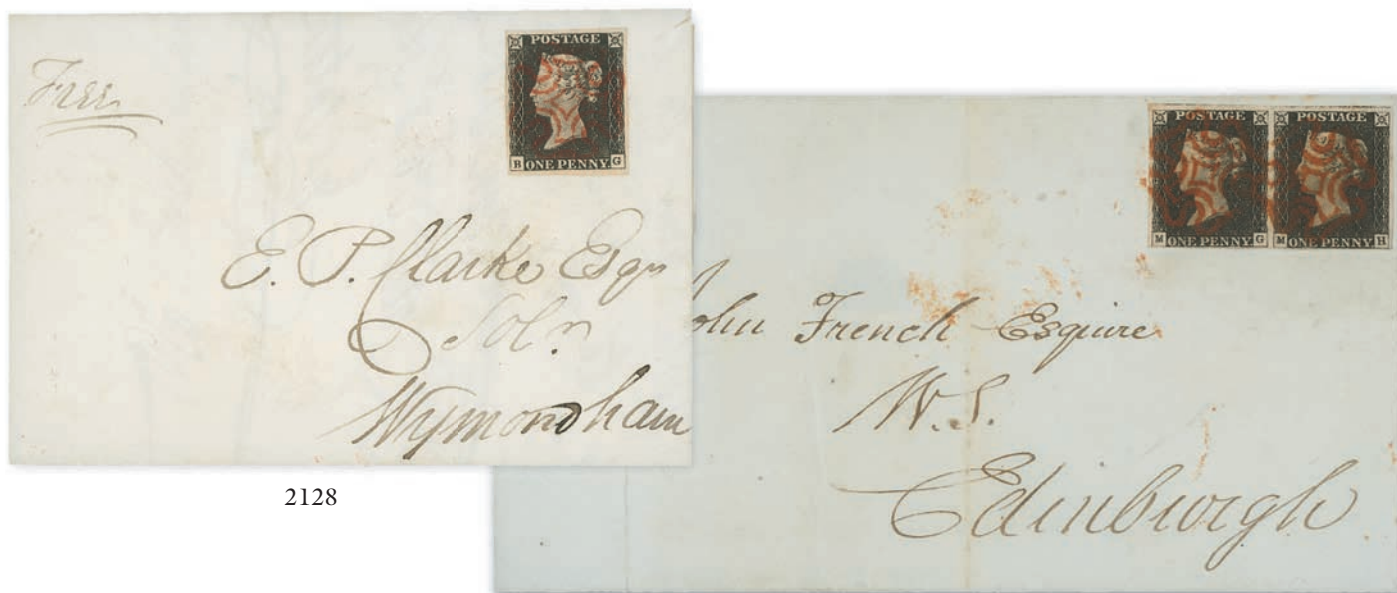 Free
POSTAGE
B ONE PENNY G
E. P. Clarke Esqr
Solr
Wymondham
2128
POSTAGE POSTAGE
M ONE PENNY G M ONE PENNY H
John French Esquire
W.S.
Edinburgh